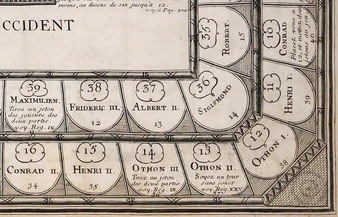 moins, au dessus de six jusqu'a 12
voyez Pag.
CCIDENT
35
ROBERT.
15
10
CONRAD
40
11
HENRI I.
39
39
MAXIMILIEN.
Tirez un jeton
des joueurs des
deux partis.
voy. Reg. IX
38
FRIDERIC III.
12
37
ALBERT II.
13
36
SIGISMOND
14
12
OTHON I.
38
16
CONRAD II.
34
15
HENRI II.
35
14
OTHON III
Tirez un jeton
des deux partis
voy. Reg. IX
13
OTHON II.
Soyez un tour
sans jouer
voy. Reg. XXV